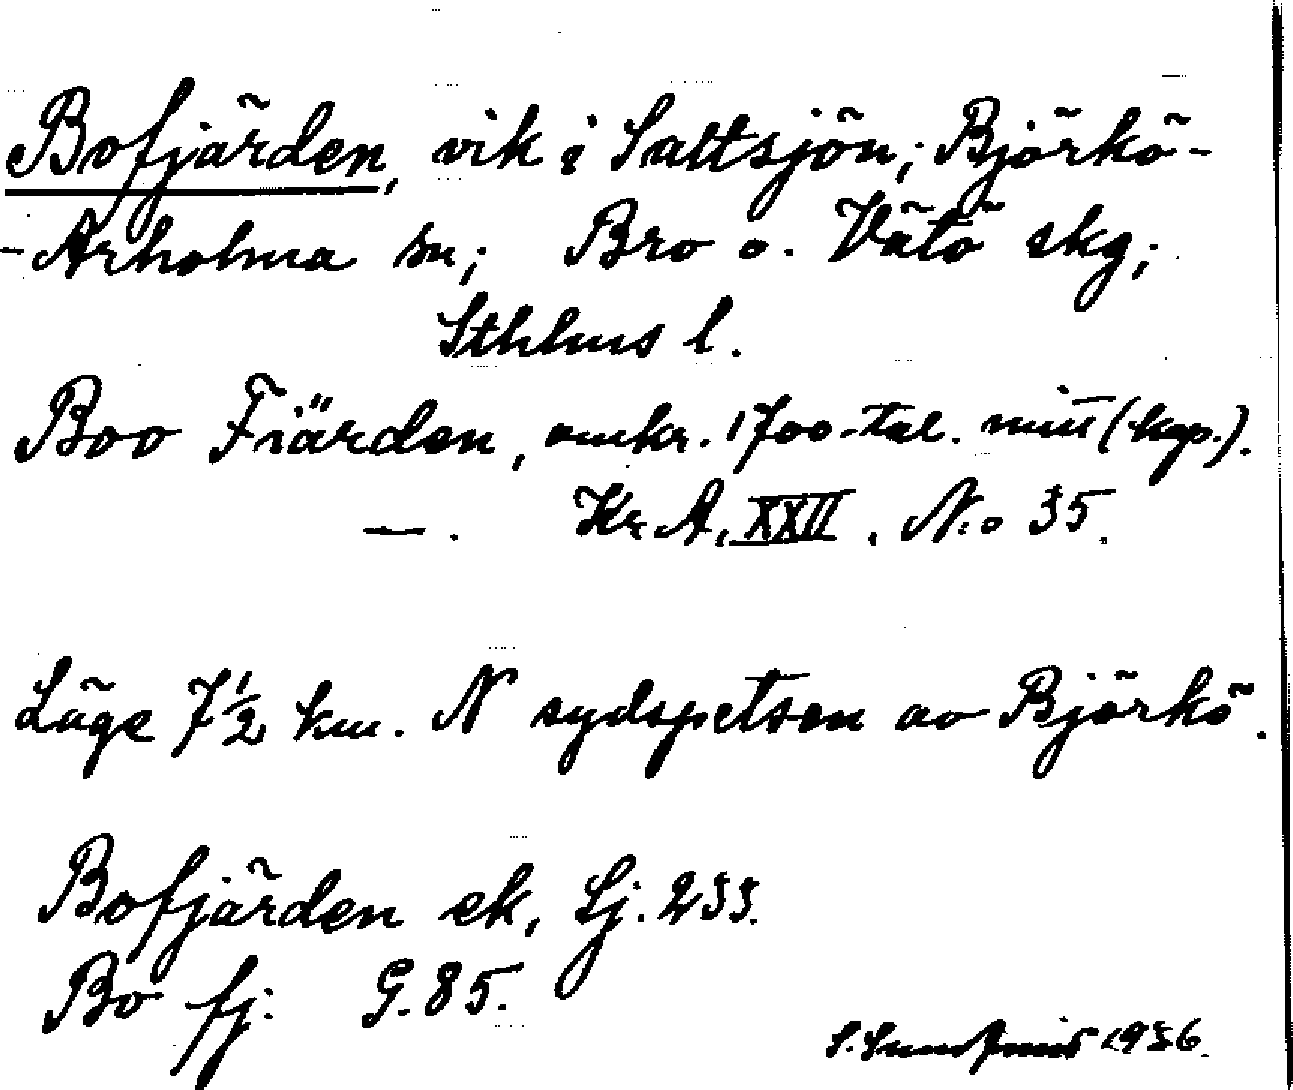 Bofjärden, vik i Saltsjön; Björkö-
-Arholma sn; Bro o. Vätö skg;
Sthlms l.
Boo Fiärden, omkr. 1700-tal. mitt (kop.).
—. Kr. A. XXII, N:o 35.
Läge 7 1/2 km. N sydspetsen av Björkö.
Bofjärden ek, Sj. 233.
Bo fj. G. 85.
1936.